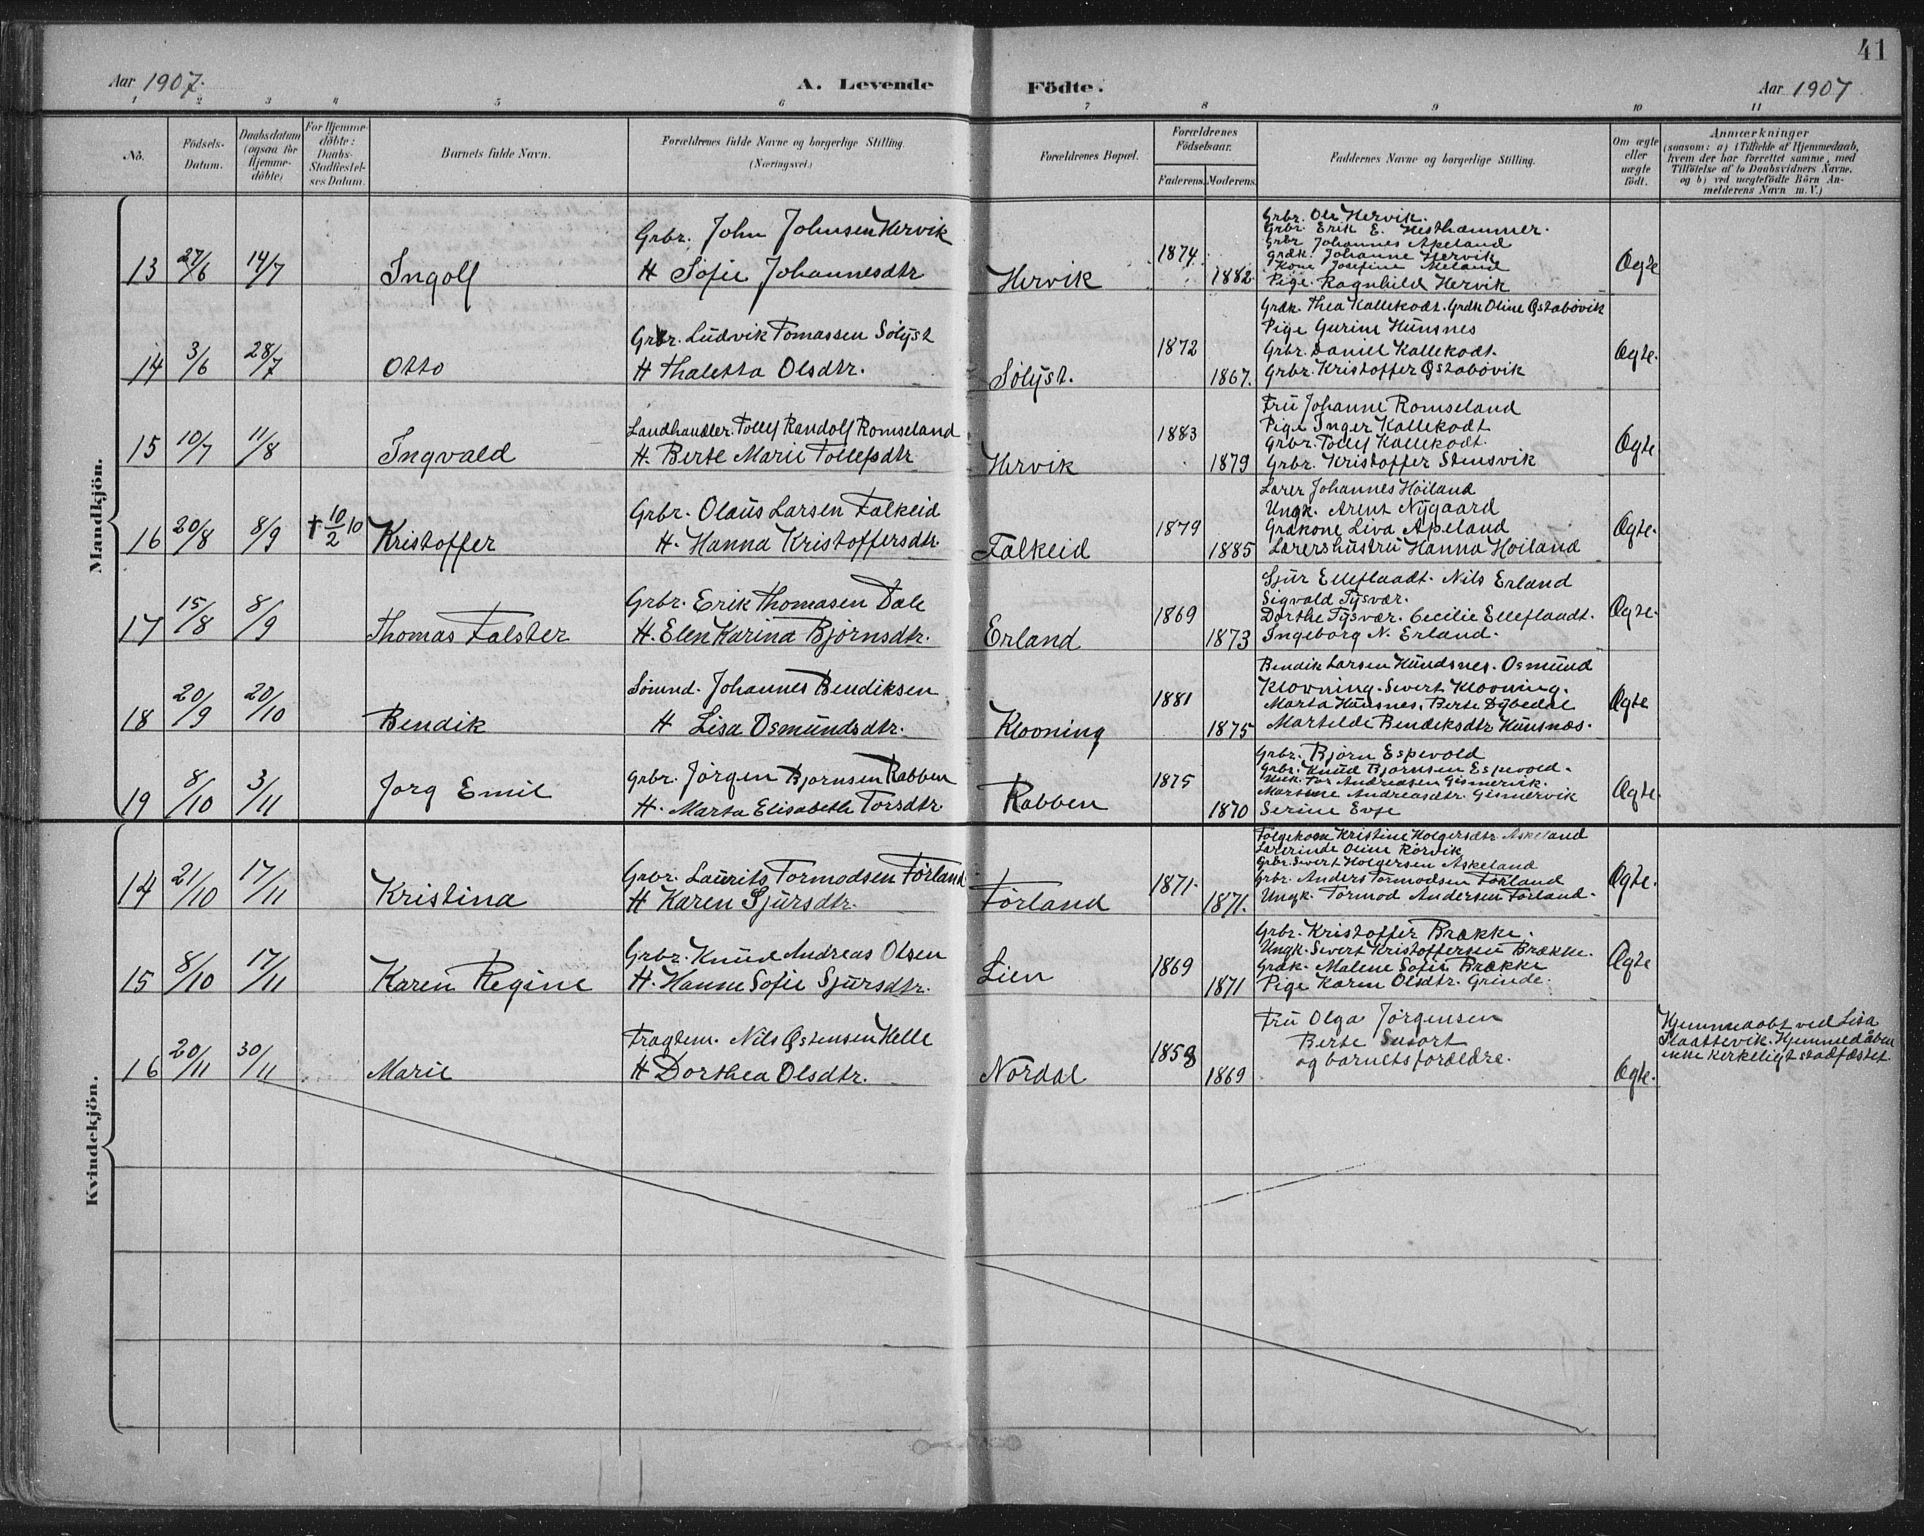 41
Aar 1907.
A. Levende
Födte.
Aar 1907
1 2 3 4 5 6 7 8 9 10 11
No.
Födsels-
Datum.
Daabsdatum
(ogsaa for
Hjemme-
döbte)
For Hjemme-
döbte:
Daabs-
Stadfæstel-
ses Datum.
Barnets fulde Navn.
Forældrenes fulde Navne og borgerlige Stilling.
(Næringsvei.)
Forældrenes Bopæl.
Forældrenes
Födselsaar.
Faderens. Moderens.
Faddernes Navne og borgerlige Stilling.
Om ægte
eller
uægte
födt.
Anmærkninger
(saasom: a) i Tilfælde af Hjemmedaab,
hvem der har forrettet samme, med
Tilföielse af to Daabsvidners Navne,
og b) ved uægtefödte Börn An-
melderens Navn m.V.)
Mandkjön.
13 27/6 14/7 Ingolf
Grbr. John Johnsen Hervik
H Sofie Johannesdtr
Hervik 1874. 1882.
Grbr. Ole Hervik.
Grbr. Erik E. Hesthammer.
Grbr Johannes Apeland
Grdk. Johanne Hervik
Kone Josefine Meland
Pige. Ragnhild Hervik
Ægte
14 3/6 28/7 Otto
Grbr. Ludvik Tomassen Sólyst
H Thaletta Olsdtr.
Sólyst. 1872 1867.
Grdk. Thea Kallekodt. Grdk Oline Østabóvik
Pige Gurine Hunsnes
Grbr. Daniel Kallekodt.
Grbr. Kristoffer Østabóvik
Ægte.
15 10/7 11/8 Ingvald
Landhandler. Tollef Randolf Romseland
H. Berte Marie Tollefsdtr
Hervik 1883 1879
Fru Johanne Romseland
Pige Inger Kallekodt
Grbr. Tollef Kallekodt.
Grbr. Kristoffer Stensvik
Ægte
16 20/8 8/9 † 10/2 10 Kristoffer
Grbr. Olaus Larsen Falkeid
H. Hanna Kristoffersdtr.
Falkeid 1879 1885
Lærer Johannes Hóiland
Ungk. Arent Nygaard
Grdkone Liva Apeland
Lærershustru Hanna Hóiland
Ægte.
17 15/8 8/9 Thomas Falster
Grbr. Erik Thomasen Dale
H. Elen Karina Bjórnsdtr.
Erland 1869 1873
Sjur Elleflaadt. Nils Erland
Sigvald Tysvær.
Dorthe Tysvær. Cecilie Elleflaadt.
Ingeborg N. Erland.
Ægte.
18 20/9 20/10 Bendik
Sómnd. Johannes Bendiksen
H Lisa Osmundsdtr.
Klovning 1881 1875
Bendik Larsen Hundsnes. Osmund
Klovning. Sivert Klovning.
Marta Hunsnes, Berte Dybedal
Martelde Bendeksdtr Hunsnæs.
Ægte
19 8/10 3/11 Jorg Emil
Grbr. Jórgen Bjornsen Rabben
H. Marta Elisabeth Torsdtr.
Rabben 1875 1870
Grbr. Bjórn Espevold
Grbr. Knud Bjornsen Espevold.
Unk. Tor Andreasen Gismervik.
Martine Andreasdtr. Gismervik
Serine Evje
Ægte.
Kvindekjön.
14 21/10 17/11 Kristina
Grbr. Laurits Tormodsen Fórland
H Karen Sjursdtr.
Fórland 1871. 1871.
Fólgekona Kristine Holgersdtr. Askeland
Lærerinde Oline Rórvik
Grbr. Sivert Holgersen Askeland
Grbr. Anders Tormodsen Fórland
Ungk. Tormod Andersen Fórland.
Ægte.
15 8/10 17/11 Karen Regine
Grbr. Knud Andreas Olsen
H. Hanne Sofie Sjursdtr.
Lien 1869 1871
Grbr. Kristoffer Brække.
Ungk. Sivert Kristoffersen Brække.
Grdk. Malene Sofie Brække
Pige Karen Olsdtr. Grinde.
Ægte
16 20/11 30/11 Marie
Fragtem. Nils Østensen Helle
H Dorthea Olsdtr.
Nordal 1858 1869
Fru Olga Jórgensen
Berte Susort
og barnets forældre.
Ægte.
Hjemmedóbt ved Lisa
Slaattevik. Hjemmedåben
ikke kirkeligt stadfæstet